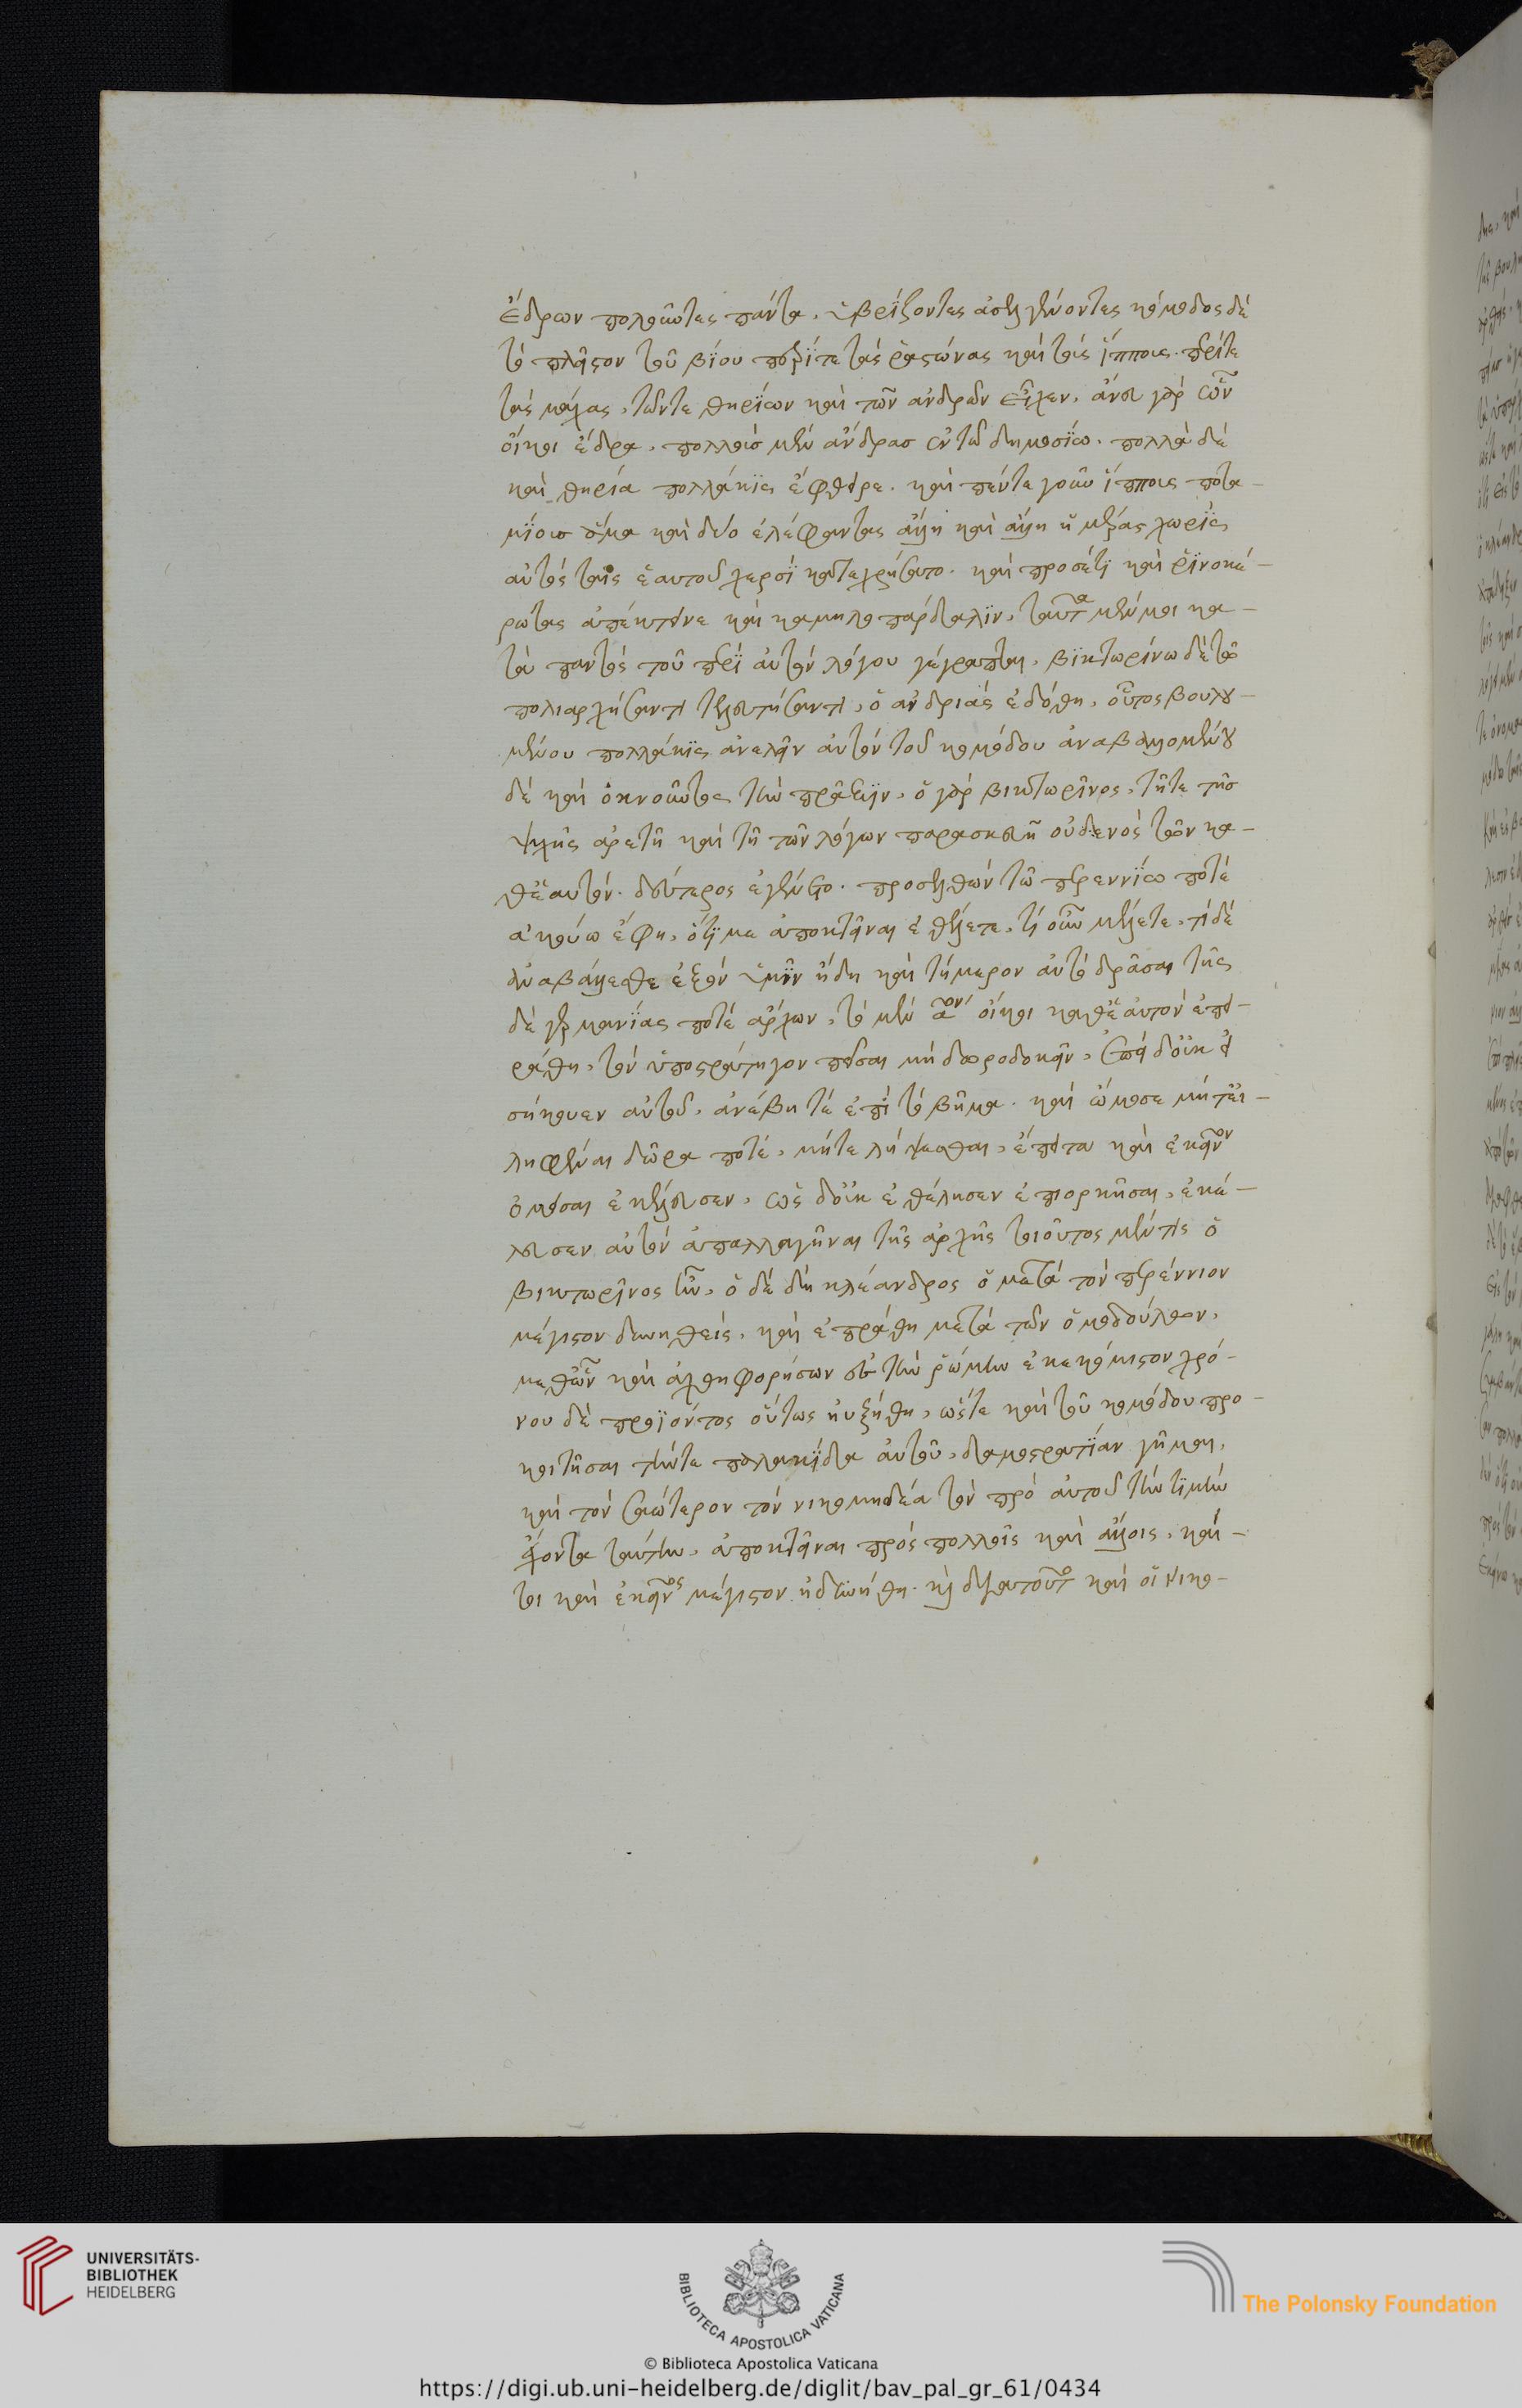 ἔδρων πολοῦντες πάντα, ὑβρίζοντες ἀσελγαίνοντες κόμοδος δὲ
τὸ πλεῖστον τοῦ βίου περίτε τὰς ῥαστώνας καὶ τοὺς ἵππους. περίτε
τὰς μάχας, τῶντε θηρίων καὶ τῶν ἀνδρῶν εἶχεν. ἄνευ γὰρ ὧν
οἴκοι ἔδρα, πολλοὺς μὲν ἄνδρασ ἐν τῶ δημοσίω. πολλὰ δὲ
καὶ θηρία πολλάκις ἔφθειρε. καὶ πέντε γοῦν ἵππους ποτα-
μίουσ ἅμα καὶ δύο ἐλέφαντας ἄλλη καὶ ἄλλη ἡμέρας χωρὶς
αὐτὸς ταῖς ἑαυτοῦ χερσὶ κατεχρήσατο. καὶ προσέτι καὶ ῥινοκέ-
ρωτας ἀπέκτεινε καὶ καμηλοπάρδαλιν, ταῦτα μέν μοι κα-
τὰ παντὸς τοῦ περὶ αὐτὸν λόγου γέγραπται, βικτωρίνω δὲ τῶ
πολιαρχήσαντι τελευτήσαντι, ὁ ἀνδριὰς ἐδόθη, οὗτος βουλο-
μένου πολλάκις ἀνελεῖν αὐτὸν τοῦ κομόδου ἀναβαλλομένου
δὲ καὶ ὀκνοῦντος τὴν πρᾶξιν, ὁ γὰρ βικτωρῖνος, τῆτε τῆσ
ψυχῆς ἀρετῆ καὶ τῆ τῶν λόγων παρασκευῆ οὐδενὸς τῶν κα-
θἑαυτὸν. δεύτερος ἐγένετο. προσελθὼν τῶ περεννίω ποτὲ
ἀκούω ἔφη, ὅτι με ἀποκτεῖναι ἐθέλετε, τί οὖν μέλλετε, τί δὲ
ἀναβάλλεσθε ἐξὸν ὑμῖν ἤδη καὶ τήμερον αὐτὸ δρᾶσαι τῆς
δὲ γερμανίας ποτὲ ἄρχων, τὸ μὲν πρῶτον οἴκοι καθἑαυτὸν ἐπει-
ράθη, τὸν ὑποστράτηγον πεῖσαι μὴ δωροδοκεῖν, ἐπεὶ δοὐκ ἐ
σήκουεν αὐτοῦ, ἀνέβη τὲ ἐπὶ τὸ βῆμα. καὶ ὤμοσε μήτεἰ-
ληφέναι δῶρα ποτέ, μήτε λήψεσθαι, ἔπειτα καὶ ἐκεῖνον
ὀμόσαι ἐκέλευσεν, ὡς δοὐκ ἐθέλησεν ἐπιορκῆσαι, ἐκέ-
λευσεν αὐτὸν ἀπαλλαγῆναι τῆς ἀρχῆς τοιοῦτος μέν τις ὁ
βικτωρῖνος ἦν, ὁ δὲ δὴ κλέανδρος ὁ μετὰ τὸν περέννιον
μέγιστον δυνηθεὶς, καὶ ἐπράθη μετὰ τῶν ὁμοδούλων,
μεθὧν καὶ ἀχθηφορήσων ἐς τὴν ῥώμην ἐκεκόμιστον χρό-
νου δὲ προϊόντος οὕτως ηὐξήθη, ὥστε καὶ τοῦ κομόδου προ-
κοιτῆσαι τήντε παλλακίδα αὐτοῦ, δαμοστρατίαν γῆμαι,
καὶ τὸν σαώτερον τὸν νικομηδέα τὸν πρὸ αὐτοῦ τὴν τιμὴν
ἔχοντα ταύτην, ἀποκτεῖναι πρὸς πολλοῖς καὶ ἄλλοις, καί-
τοι καὶ ἐκεῖνος μέγιστον ἠδυνήθη. καὶ διατοῦτο καὶ οἱ νικο-

UNIVERSITÄTS-
BIBLIOTHEK
HEIDELBERG
BIBLIOTECA APOSTOLICA VATICANA
The Polonsky Foundation
© Biblioteca Apostolica Vaticana
https://digi.ub.uni-heidelberg.de/diglit/bav_pal_gr_61/0434